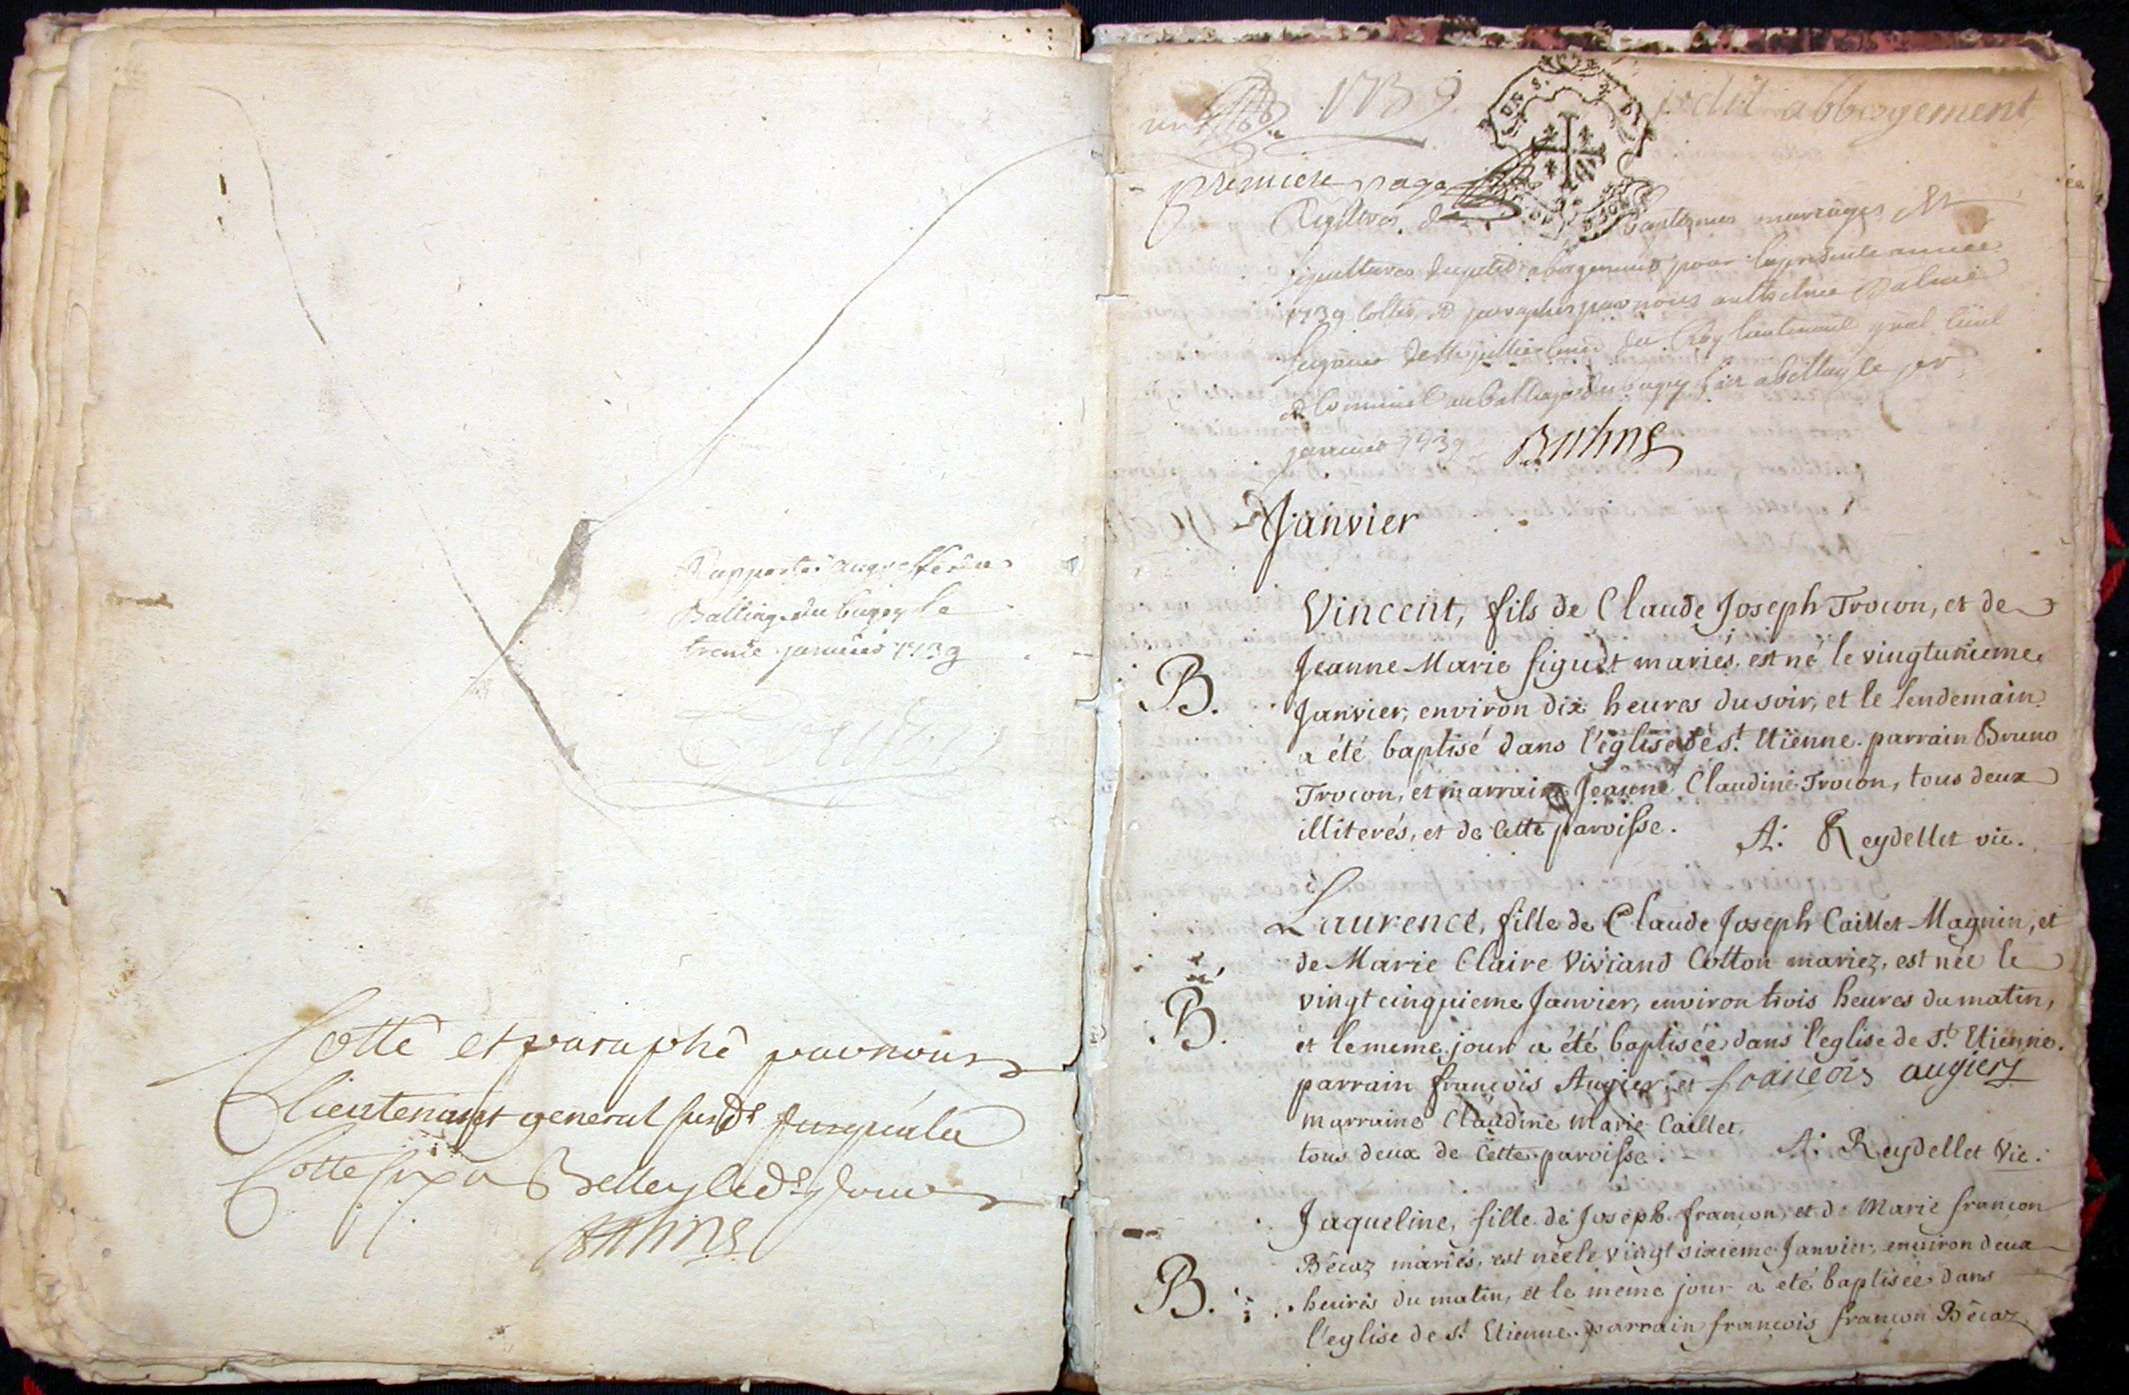 Rapporté au greffe du
Balliage du bugey le
trente janvier 1739
Cotté et paraphé par nous
Lieutenant general susdt jusqu'a la
Cotte six a Belley led. jour
1739 petit abbergement
premiere page
Registres de baptemes mariages et
sepultures du petit abergement pour la presente année
1739 cottés et paraphés par nous anthelme Balme
du Roy lieutenant gnal Civil
et Criminel au balliage du bugey a belley le per
janvier 1739 Balme
Janvier
Vincent, fils de Claude Joseph Trocon, et de
Jeanne Marie figuet mariés, est né le vingtunieme
B.
Janvier, environ dix heures du soir, et le lendemain
a été baptisé dans l'église de st. Etienne. parrain Bruno
Trocon, et marraine Jeanne Claudine Trocon, tous deux
illiterés, et de cette paroisse.
A: Reydellet vic.
Laurence, fille de Claude Joseph Caillet Magnin, et
de Marie Claire Viviand Cotton mariez, est née le
B.
vingt cinquieme Janvier, environ trois heures du matin,
et le meme jour a été baptisée dans l'eglise de st. Etienne.
parrain françois Augier, et françois augier
marraine Claudine Marie Caillet,
tous deux de cette paroisse.
A: Reydellet Vic.
Jaqueline, fille de Joseph françon, et de Marie françon
Bécaz mariés, est née le vingt sixieme Janvier, environ deux
B.
heures du matin, et le meme jour a eté baptisée dans
l'eglise de st. Etienne. parrain françois françon Bécaz